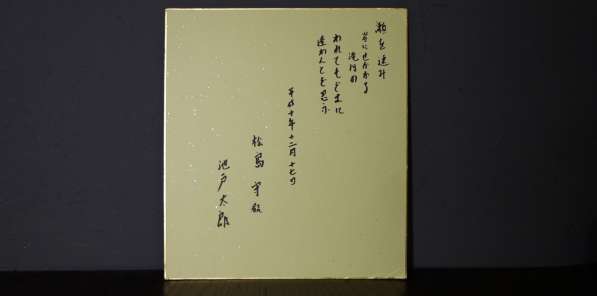 瀬を速み
岩にせかるる
滝川の
われても
逢わんとぞ思ふ
平成十年十二月十七日
松島 守殿
池戸太郎